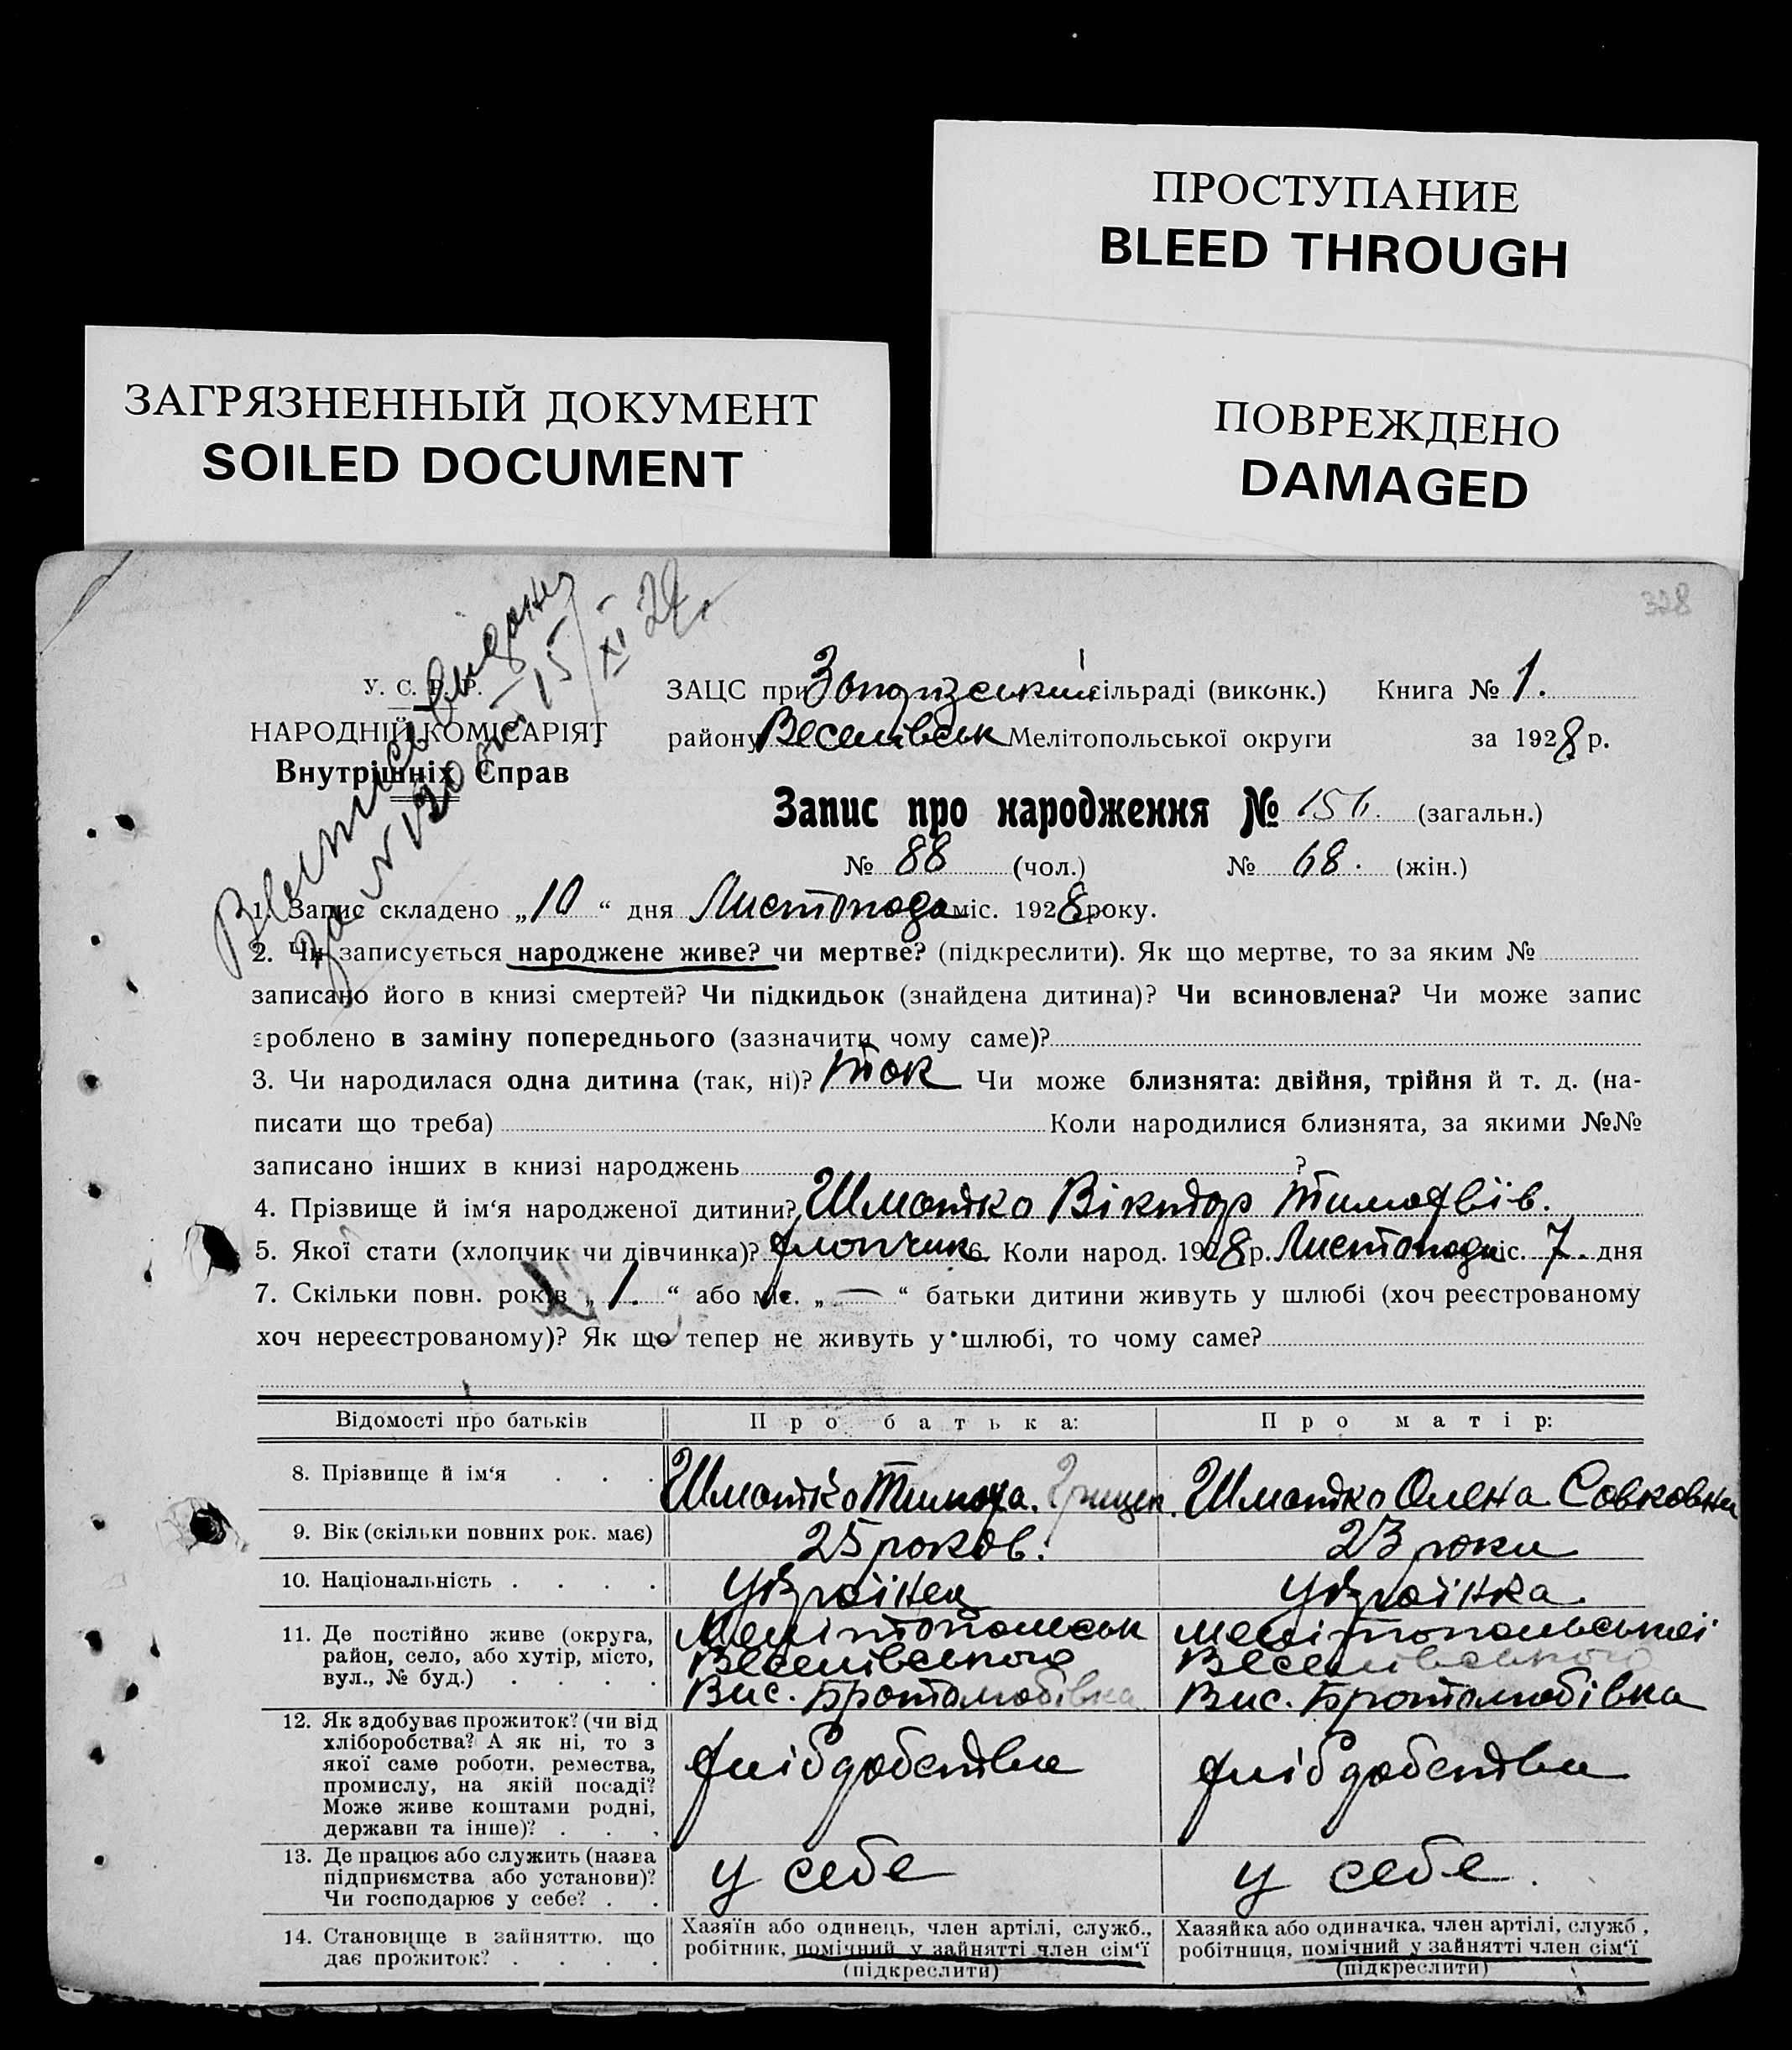 ПРОСТУПАНИЕ
BLEED THROUGH
ЗАГРЯЗНЕННЫЙ ДОКУМЕНТ
SOILED DOCUMENT
ПОВРЕЖДЕНО
DAMAGED
328
за N 130 від 15/XI 28 р
У. С. Р. Р.
НАРОДНІЙ КОМІСАРІЯТ
Внутрішніх Справ
ЗАЦС при сільраді (виконк.) Книга № 1.
району Веселівськ Мелітопольської округи за 1928 р.
Запис про народження № 156. (загальн.)
№ 88 (чол.) № 68. (жін.)
1. Запис складено „10“ дня Листопада міс. 1928 року.
2. Чи записується народжене живе? чи мертве? (підкреслити). Як що мертве, то за яким №
записано його в книзі смертей? Чи підкидьок (знайдена дитина)? Чи всиновлена? Чи може запис
зроблено в заміну попереднього (зазначити чому саме)?
3. Чи народилася одна дитина (так, ні)? так Чи може близнята: двійня, трійня й т. д. (на-
писати що треба) Коли народилися близнята, за якими №№
записано інших в книзі народжень ?
4. Прізвище й ім‘я народженої дитини? Шматко Віктор Тимофвів.
5. Якої стати (хлопчик чи дівчинка)? хлопчик 6. Коли народ. 1928 р. Листопада міс. 7. дня
7. Скільки повн. років „1.“ або міс. „—“ батьки дитини живуть у шлюбі (хоч реєстрованому
хоч нереєстрованому)? Як що тепер не живуть у шлюбі, то чому саме?
Відомості про батьків Про батька: Про матір:
8. Прізвище й ім‘я . . . Шматко Тимоха. Грицен. Шматко Олена Совковна
9. Вік (скільки повних рок. має) 25 роков. 23 роки
10. Національність . . . . Украінец Украінка.
11. Де постійно живе (округа, Мелітопольськ Мелітопольськоі
район, село, або хутір, місто, Веселівського Веселівського
вул., № буд.) . . . . Вис. Братолюбівка Вис. Братолюбівка
12. Як здобуває прожиток? (чи від
хліборобства? А як ні, то з
якої саме роботи, ремества, хлібдобства хлібдобства
промислу, на якій посаді?
Може живе коштами родні,
держави та інше)? . . .
13. Де працює або служить (назва
підприємства або установи)? у себе у себе.
Чи господарює у себе? . .
14. Становище в зайняттю, що Хазяїн або одинець, член артілі, служб., Хазяйка або одиначка, член артілі, служб.,
дає прожиток? . . . . робітник, помічний у зайнятті член сім‘ї робітниця, помічний у зайнятті член сім‘ї
(підкреслити) (підкреслити)